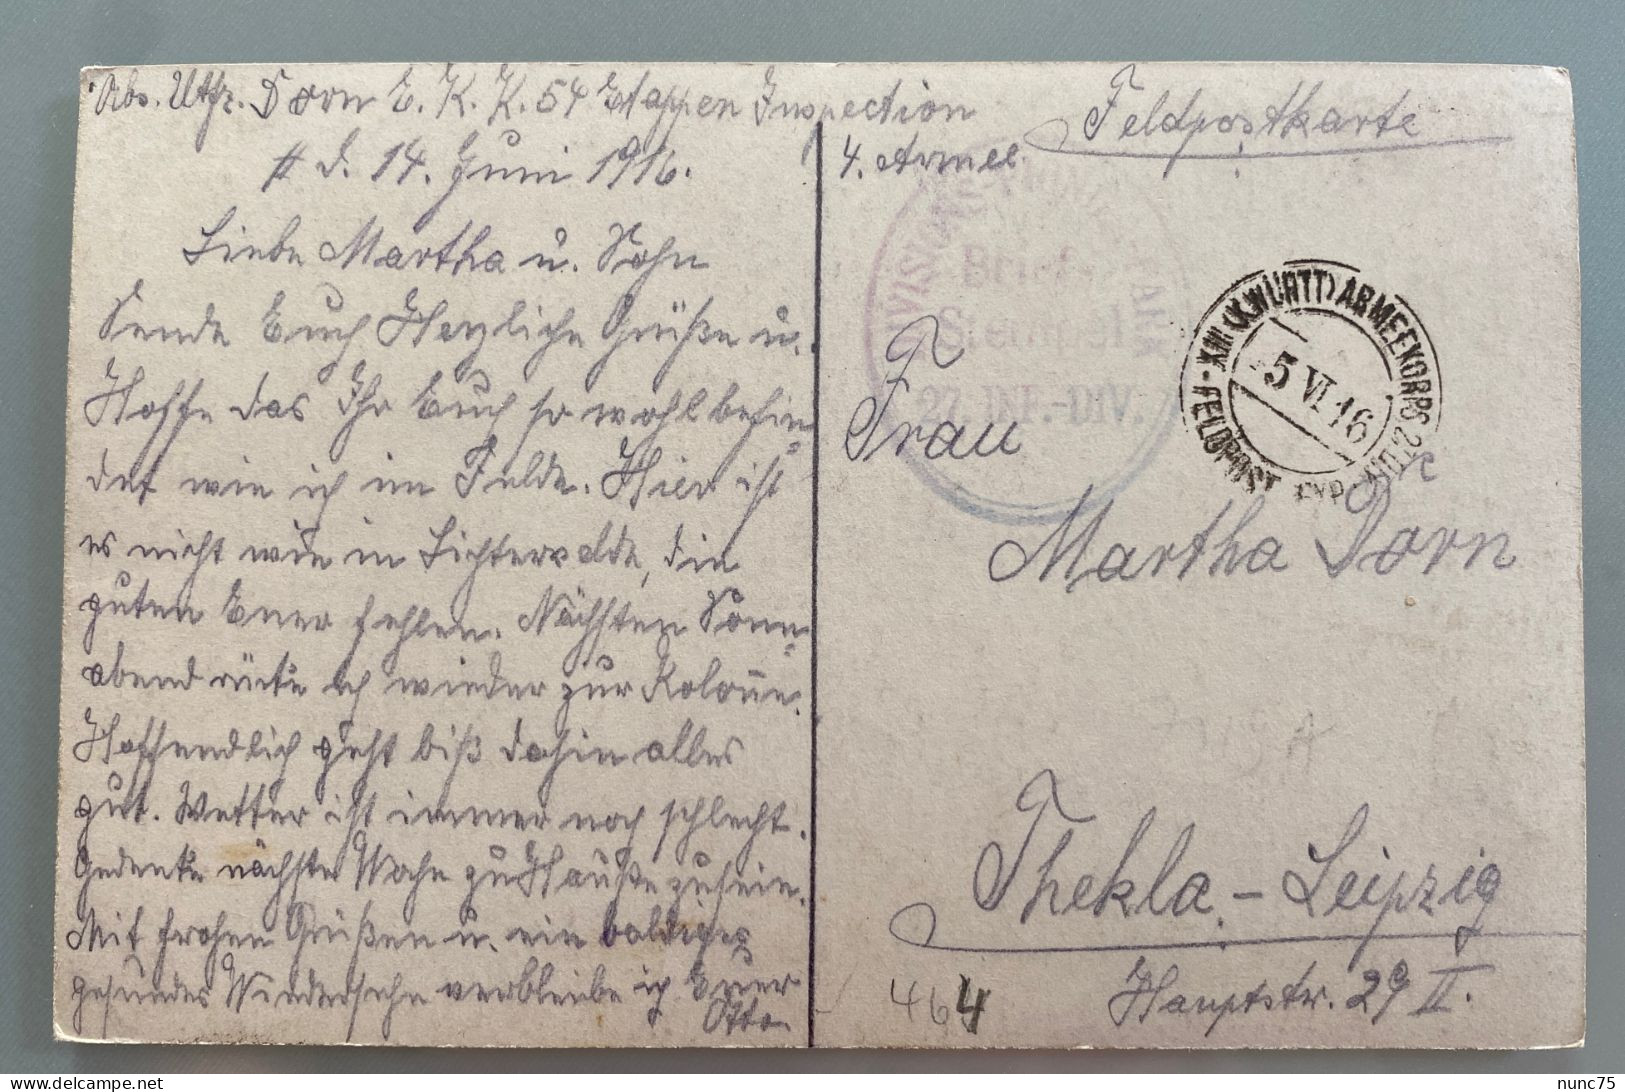 Abs. Utfz. Dorn E. K. K. 54 Etappen Inspection
4. Armee.
d. 14. Juni 1916.
Liebe Martha u. Sohn
Sende Euch Herzliche Grüße u.
Hoffe das Ihr Euch so wohl befin-
det wie ich im Felde. Hier ist
es nicht wie in Lichterfelde, die
guten Euer fehlen. Nächsten Sonn-
abend rücke ich wieder zur Kolonne.
Hoffendlich geht biß dahin alles
gut. Wetter ist immer noch schlecht.
Gedenke nächste Woche zu Hauße zu sein.
Mit frohen Grüßen u. ein baldiges
gesundes Wiedersehn verbleibe ich Euer
Otto
Feldpostkarte
Brief-
Stempel
27. INF.-DIV.
XIII. (K. WÜRTT) ARMEEKORPS
FELDPOST
5 VI 16
Frau
Martha Dorn
Thekla.-Leipzig
Hauptstr. 29 II.
464
nunc75